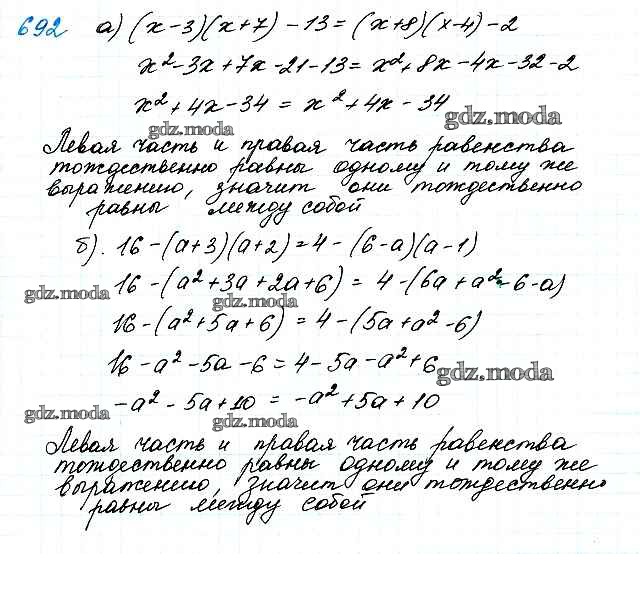 692 а) (x-3)(x+7)-13=(x+8)(x-4)-2
x²-3x+7x-21-13=x²+8x-4x-32-2
x²+4x-34=x²+4x-34
gdz.moda
gdz.moda
Левая часть и правая часть равенства
тождественно равны одному и тому же
выражению, значит они тождественно
равны между собой
б). 16-(a+3)(a+2)=4-(6-a)(a-1)
16-(a²+3a+2a+6)=4-(6a+a²-6-a)
gdz.moda
gdz.moda
16-(a²+5a+6)=4-(5a+a²-6)
16-a²-5a-6=4-5a-a²+6
gdz.moda
-a²-5a+10=-a²+5a+10
gdz.moda
gdz.moda
Левая часть и правая часть равенства
тождественно равны одному и тому же
выражению, значит они тождественно
равны между собой